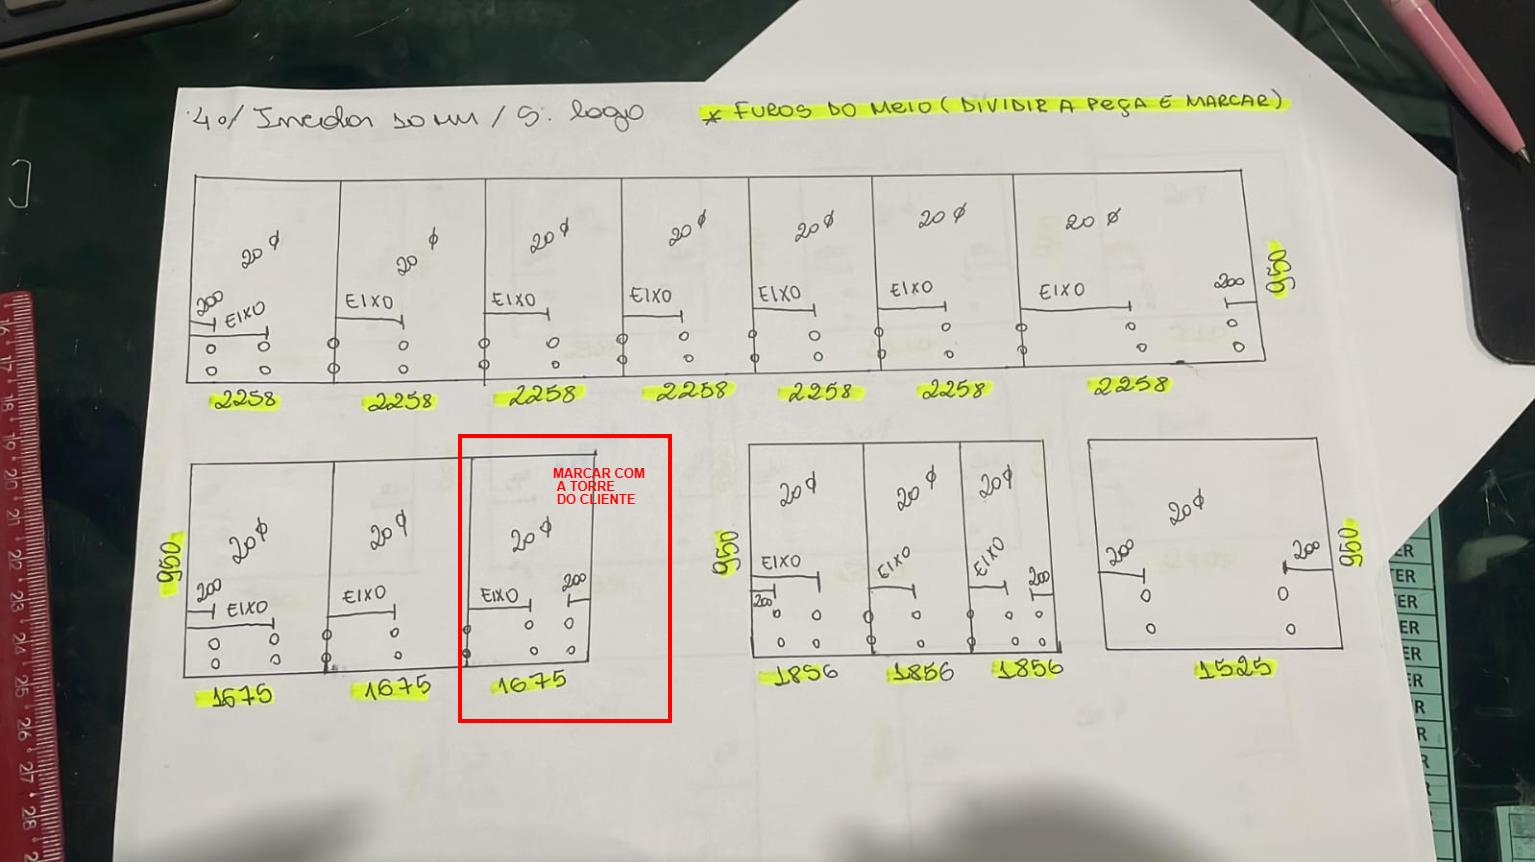 40/ Incolor 10 mm / S. logo
* FUROS DO MEIO (DIVIDIR A PEÇA E MARCAR)
20 ø 20 ø 20 ø 20 ø 20 ø 20 ø 20 ø
200 EIXO EIXO EIXO EIXO EIXO EIXO EIXO 200
950
2258 2258 2258 2258 2258 2258 2258
MARCAR COM
A TORRE
DO CLIENTE
950
20 ø 20 ø 20 ø
200 EIXO EIXO EIXO 200
1675 1675 1675
950
20 ø 20 ø 20 ø
EIXO EIXO EIXO
200 200
1856 1856 1856
20 ø
200 200
950
1525
16 17 18 19 20 21 22 23 24 25 26 27 28
ER
TER
ER
ER
ER
ER
R
R
R